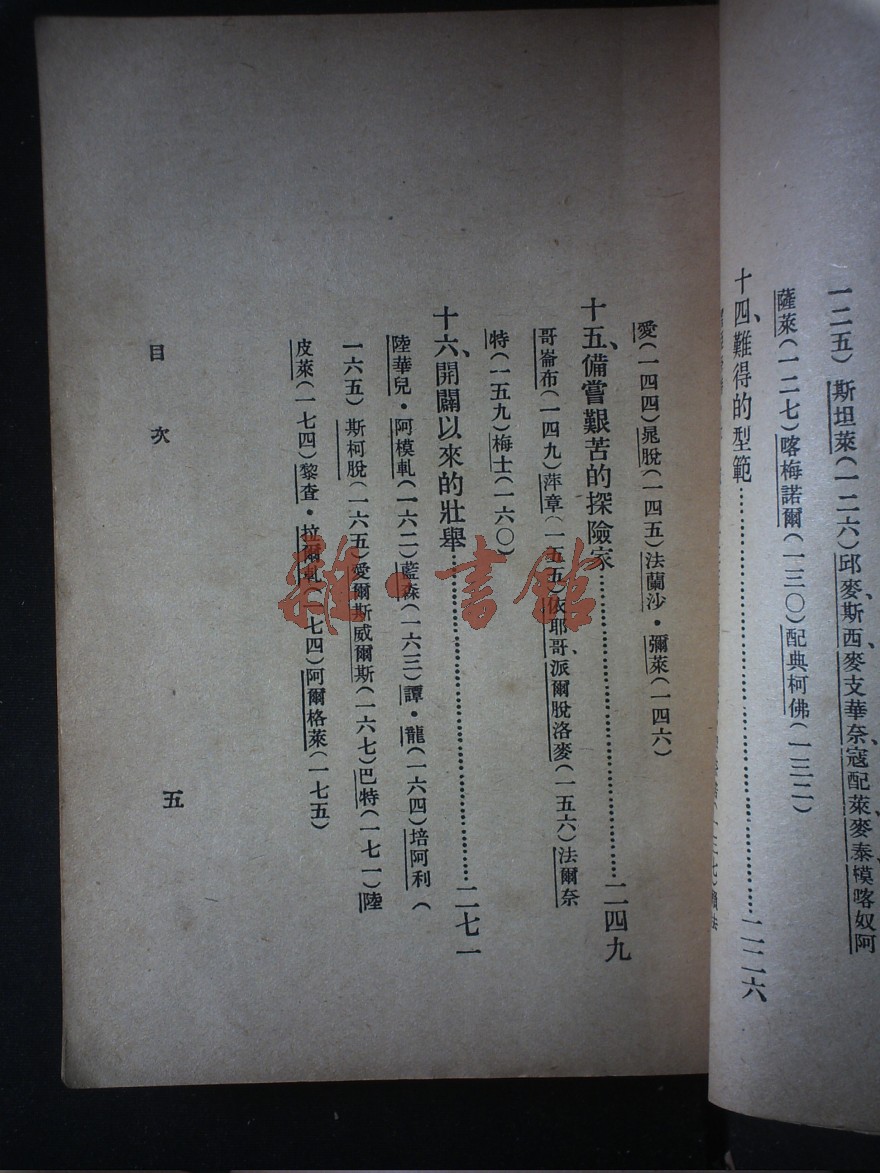 一二五）斯坦萊（一二六）邱麥斯、西麥支華奈、寇配萊、麥泰、模喀奴阿
薩萊（一二七）喀梅諾爾（一三〇）配典柯佛（一三二）
十四、難得的型範……二二六
愛（一四四）晁脫（一四五）法蘭沙・彌萊（一四六）
十五、備嘗艱苦的探險家……二四九
哥崙布（一四九）萍章（一五五）依耶哥、派爾脫洛麥（一五六）法爾奈
特（一五九）梅士（一六〇）
十六、開闢以來的壯舉……二七一
陸華兒・阿模軋（一六二）藍森（一六三）譚・龍（一六四）培阿利（
一六五）斯柯脫（一六五）愛爾斯威爾斯（一六七）巴特（一七一）陸
皮萊（一七四）黎查・拉爾軋（一七四）阿爾格萊（一七五）
目次
五
雜・書館